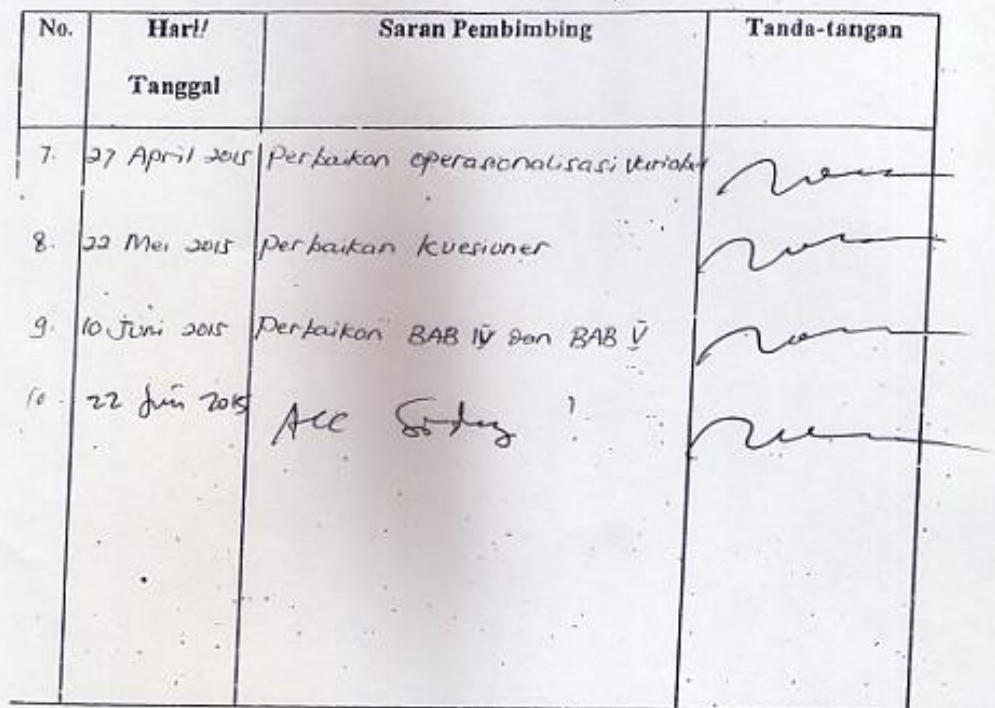 No. Hari/ Saran Pembimbing Tanda-tangan
Tanggal
7. 27 April 2015 Perbaikan operasionalisasi variabel
8. 22 Mei 2015 Perbaikan kuesioner
9. 10 Juni 2015 Perbaikan BAB IV dan BAB V
10. 22 Juni 2015 Acc Sidang !